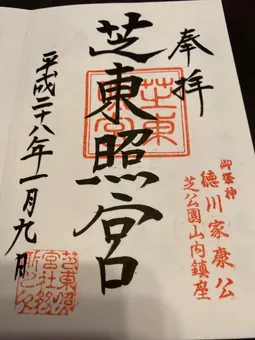 奉拝
御祭神
徳川家康公
芝公園山内鎮座
芝東照宮
芝東照宮
平成二十八年一月九日
芝東照宮社務所之印